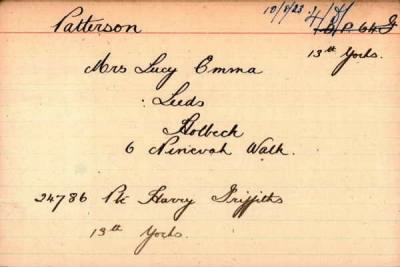 Patterson
10/1/23
13th Yorks.
Mrs Lucy Emma
Leeds
Holbeck
6 Ninevah Walk.
24786 Pte Harry Griffiths
13th Yorks.